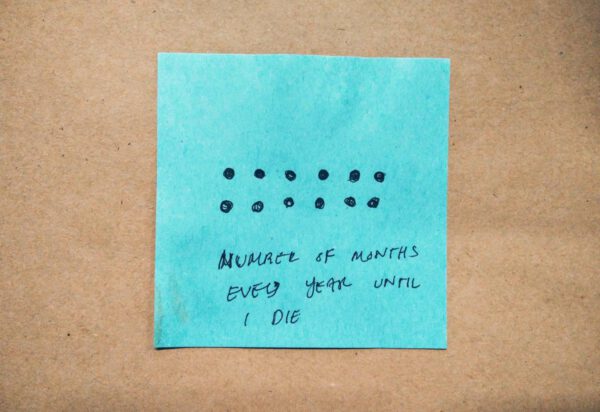 NUMBER OF MONTHS
EVERY YEAR UNTIL
I DIE